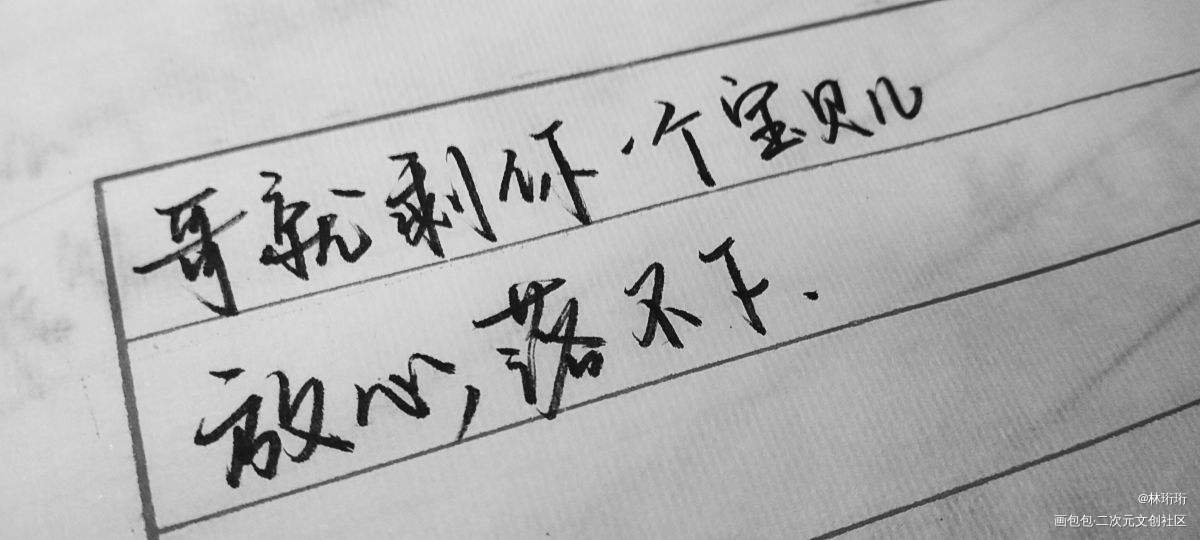 哥就剩你一个宝贝儿
放心,落不下.
@林珩珩
画包包·二次元文创社区